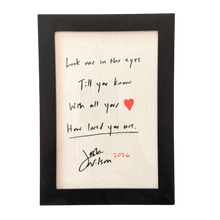 Look me in the eyes
Till you know
With all your ❤
How loved you are.
Wilson 2026